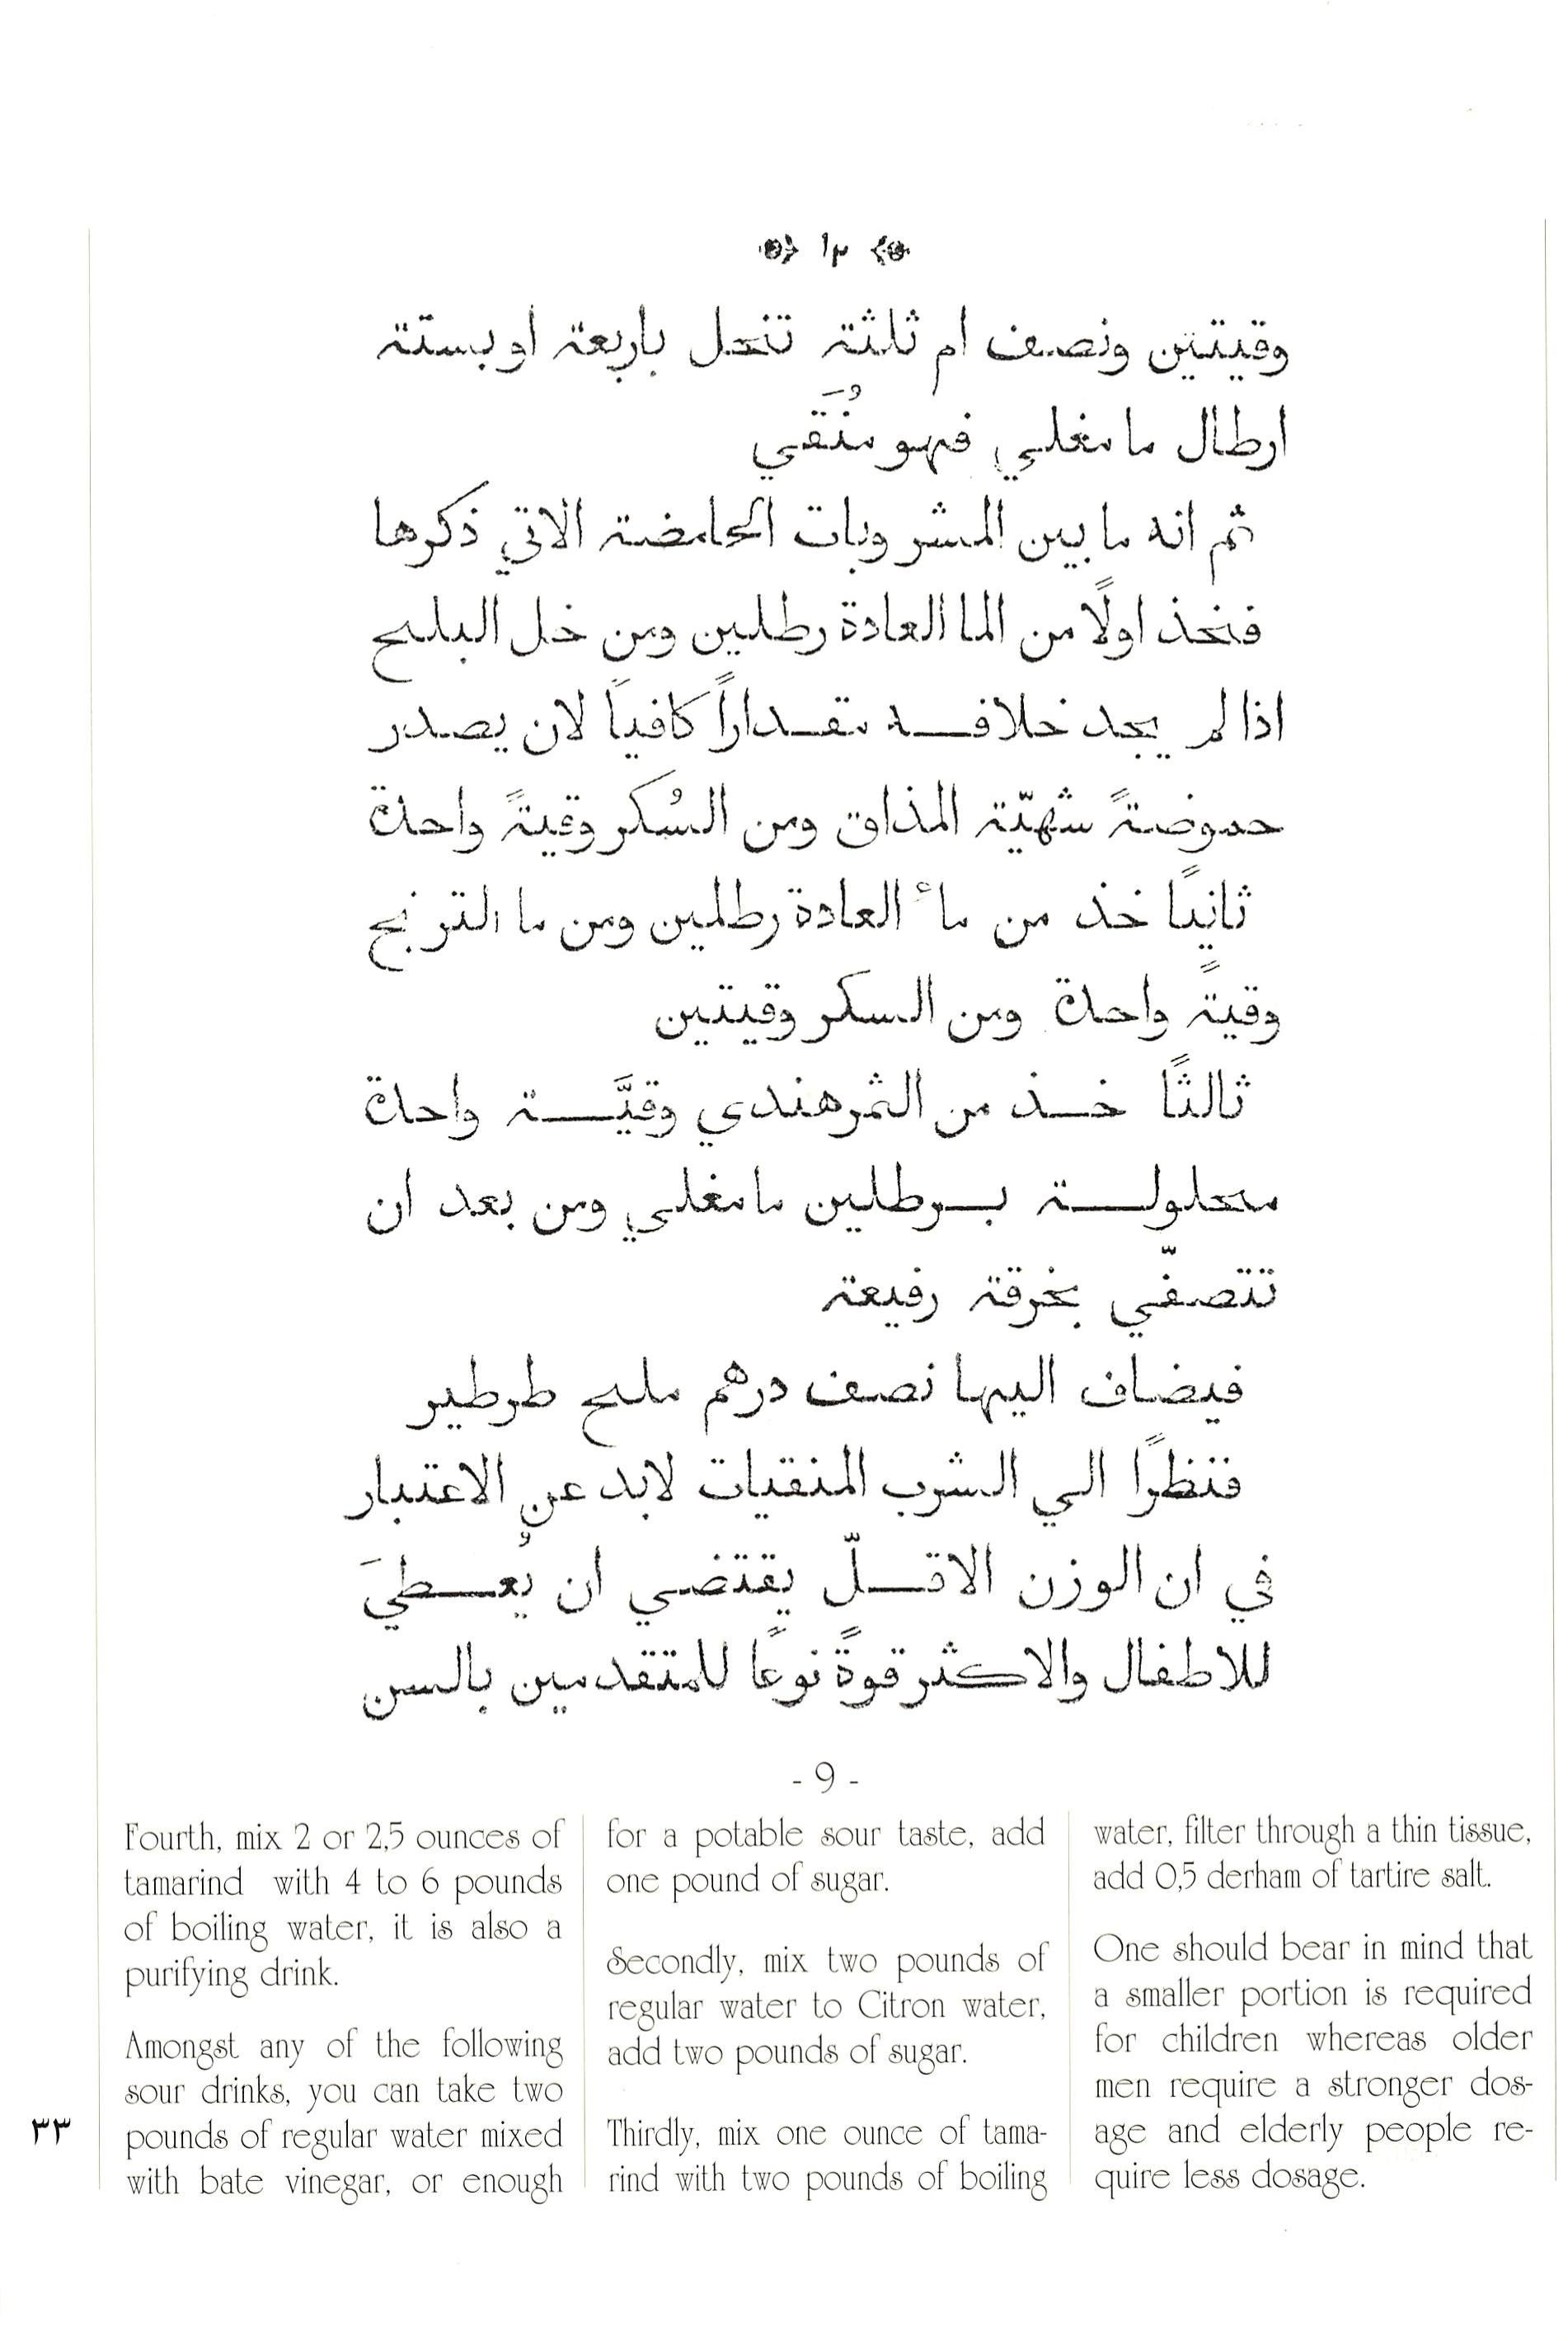 ١٣
وقيتين ونصف ام ثلثة تنحل باربعة او بستة
ارطال ما مغلي فهو مُنَقَي
ثم انه ما بين المشروبات الحامضة الاتي ذكرها
فنخذ اولًا من الما العادة رطلين ومن خل البلح
اذا لم يجد خلافه مقدارًا كافيًا لان يصدر
حموضةً شهيّة المذاق ومن السُكر وقيةً واحدة
ثانيًا خذ من ماء العادة رطلين ومن ما الترنج
وقيةً واحدة ومن السكر وقيتين
ثالثًا خذ من الثمرهندي وقيَّة واحدة
محلولة برطلين ما مغلي ومن بعد ان
تتصفّي بخرقة رفيعة
فيضاف اليها نصف درهم ملح طرطير
فنظرًا الي الشرب المنقيات لابد عن الاعتبار
في ان الوزن الاقلّ يقتضي ان يُعطيَ
للاطفال والاكثر قوةً نوعًا للمتقدمين بالسن
- 9 -
Fourth, mix 2 or 2,5 ounces of
tamarind with 4 to 6 pounds
of boiling water, it is also a
purifying drink.
Amongst any of the following
sour drinks, you can take two
pounds of regular water mixed
with bate vinegar, or enough
for a potable sour taste, add
one pound of sugar.
Secondly, mix two pounds of
regular water to Citron water,
add two pounds of sugar.
Thirdly, mix one ounce of tama-
rind with two pounds of boiling
water, filter through a thin tissue,
add 0,5 derham of tartire salt.
One should bear in mind that
a smaller portion is required
for children whereas older
men require a stronger dos-
age and elderly people re-
quire less dosage.
٣٣